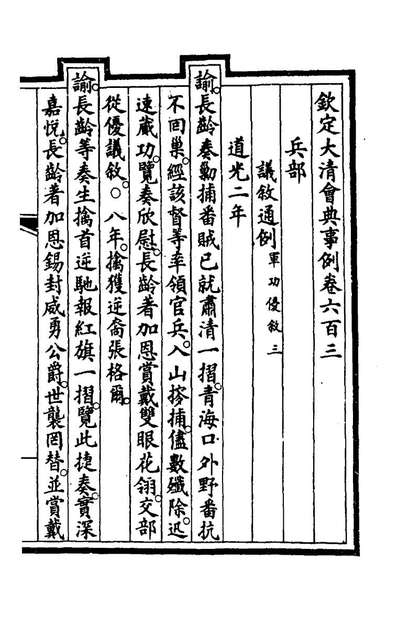 欽定大清會典事例卷六百三
兵部
議敘通例軍功優敘三
道光二年
諭。長齡奏勦捕番賊已就肅清一摺。青海口外野番抗
不回巢。經該督等率領官兵。入山搜捕。儘數殲除。迅
速蕆功。覽奏欣慰。長齡著加恩賞戴雙眼花翎。交部
從優議敘。○八年。擒獲逆裔張格爾。
諭。長齡等奏生擒首逆馳報紅旗一摺。覽此捷奏。實深
嘉悅。長齡著加恩錫封威勇公爵。世襲罔替。並賞戴